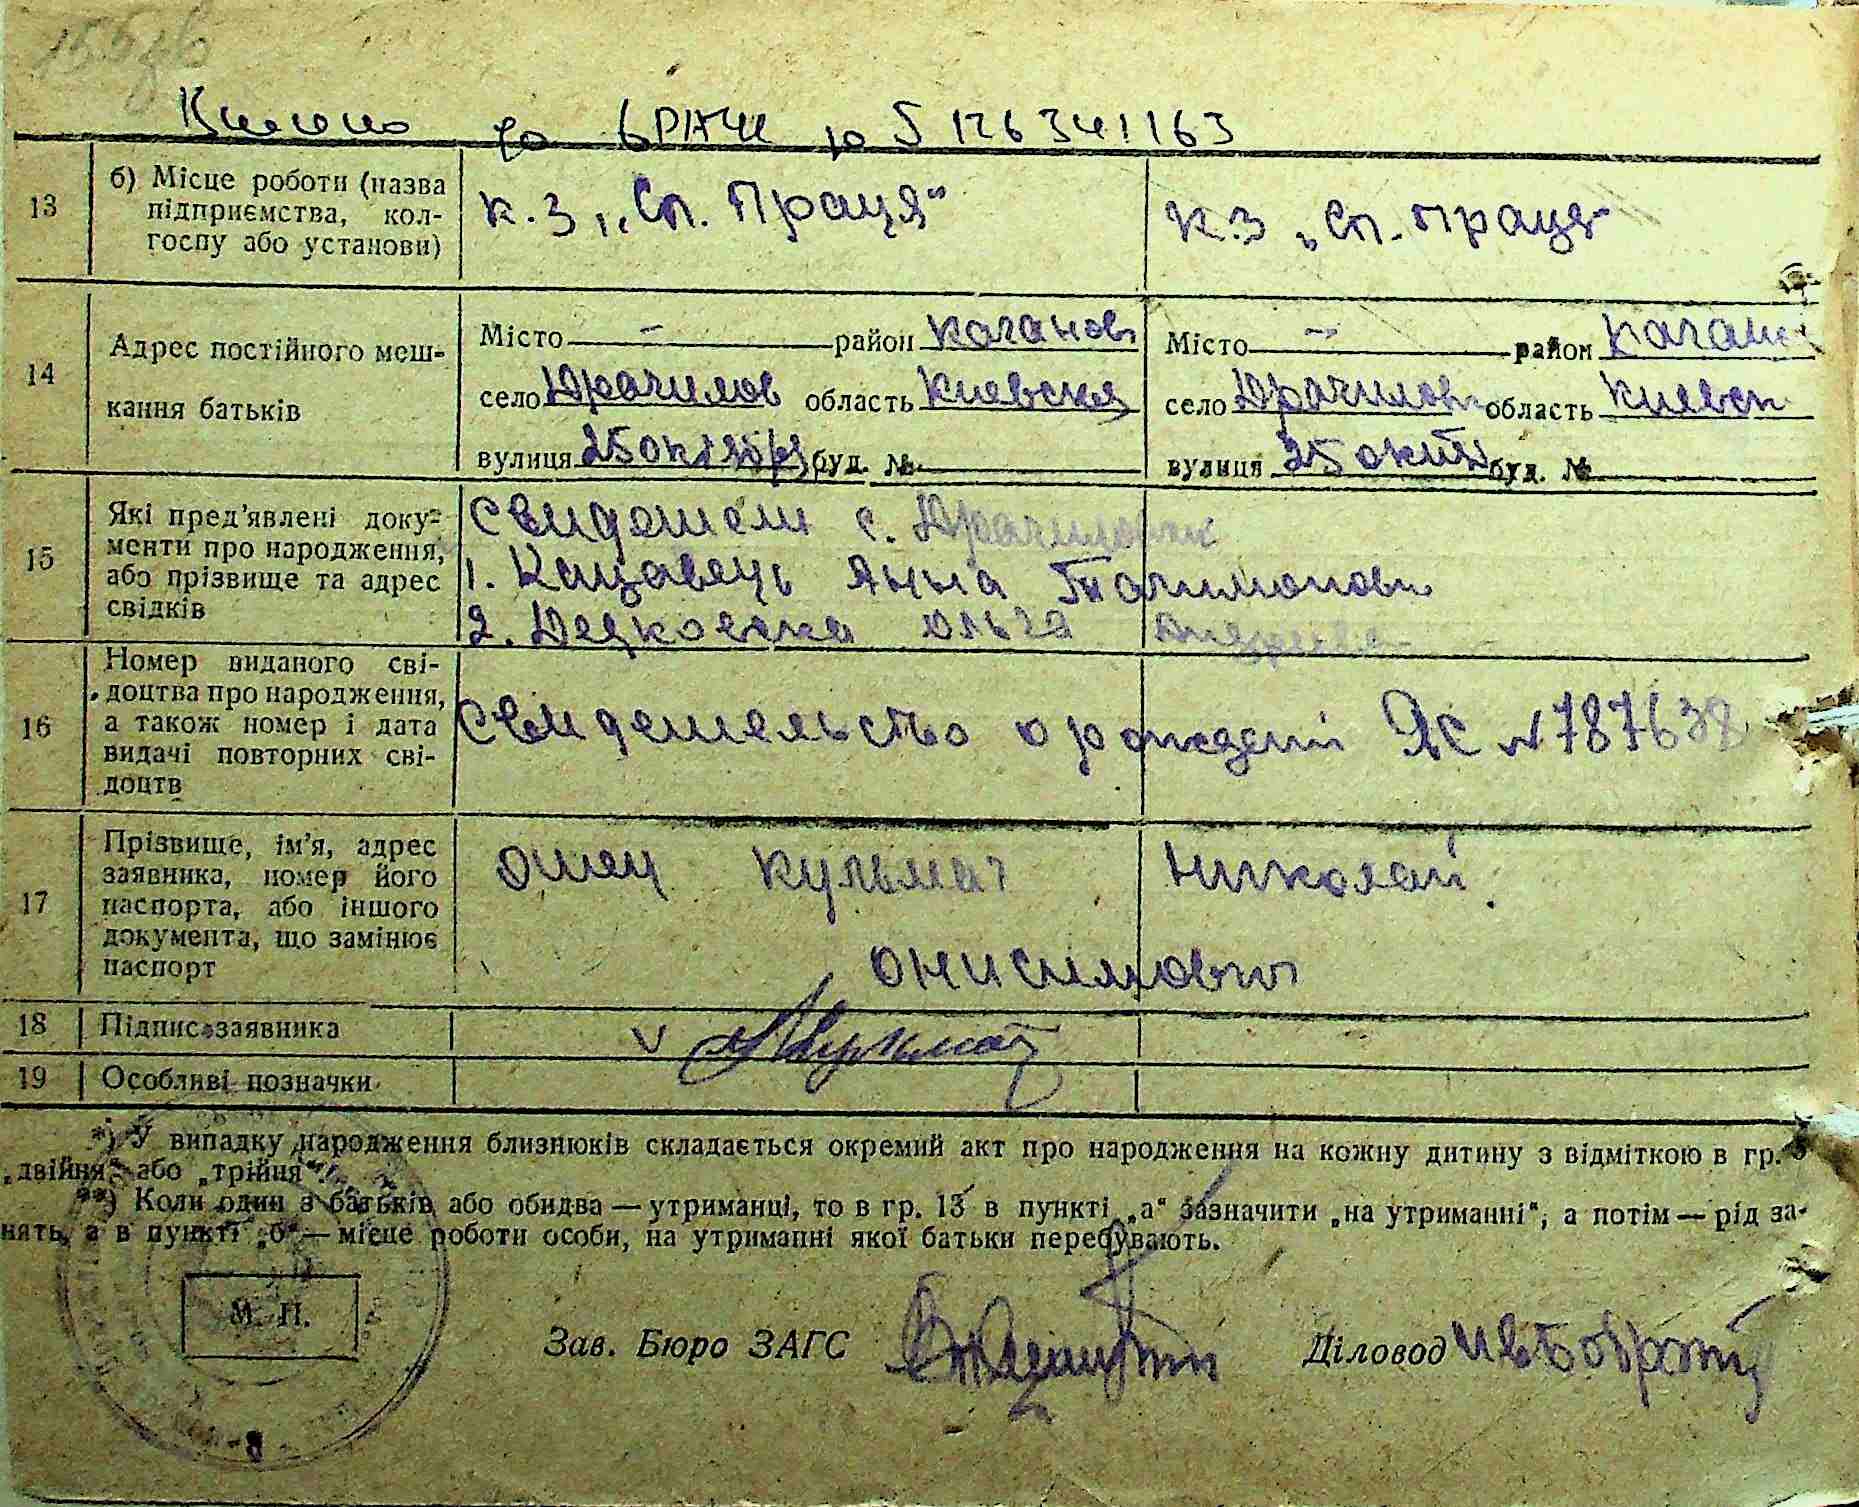 13 б) Місце роботи (назва підприємства, кол-
госпу або установи) К.З. „Сп. Праця“ К.З „Сп. Праця
14 Адрес постійного меш-
кання батьків
Місто — район Каганов Місто — район
село область Киевская село область Киевск
вулиця 25 октября буд. № вулиця 25 буд. №
15 Які пред’явлені доку-
менти про народження,
або прізвище та адрес
свідків
Свидетели с.
1. Анна
2. Ольга
16 Номер виданого сві-
доцтва про народження,
а також номер і дата
видачі повторних сві-
доцтв
Свидетельство о рождении ЯС № 787638
17 Прізвище, ім’я, адрес
заявника, номер його
паспорта, або іншого
документа, що замінює
паспорт
Отец Кульмач Николай
Онисимович
18 Підпис заявника V
19 Особливі позначки
*) У випадку народження близнюків складається окремий акт про народження на кожну дитину з відміткою в гр. 5
„двійня“ або „трійня“.
**) Коли один з батьків або обидва — утриманці, то в гр. 13 в пункті „а“ зазначити „на утриманні“, а потім — рід за-
нять, а в пункті „б“ — місце роботи особи, на утриманні якої батьки перебувають.
М. П.
Зав. Бюро ЗАГС Діловод